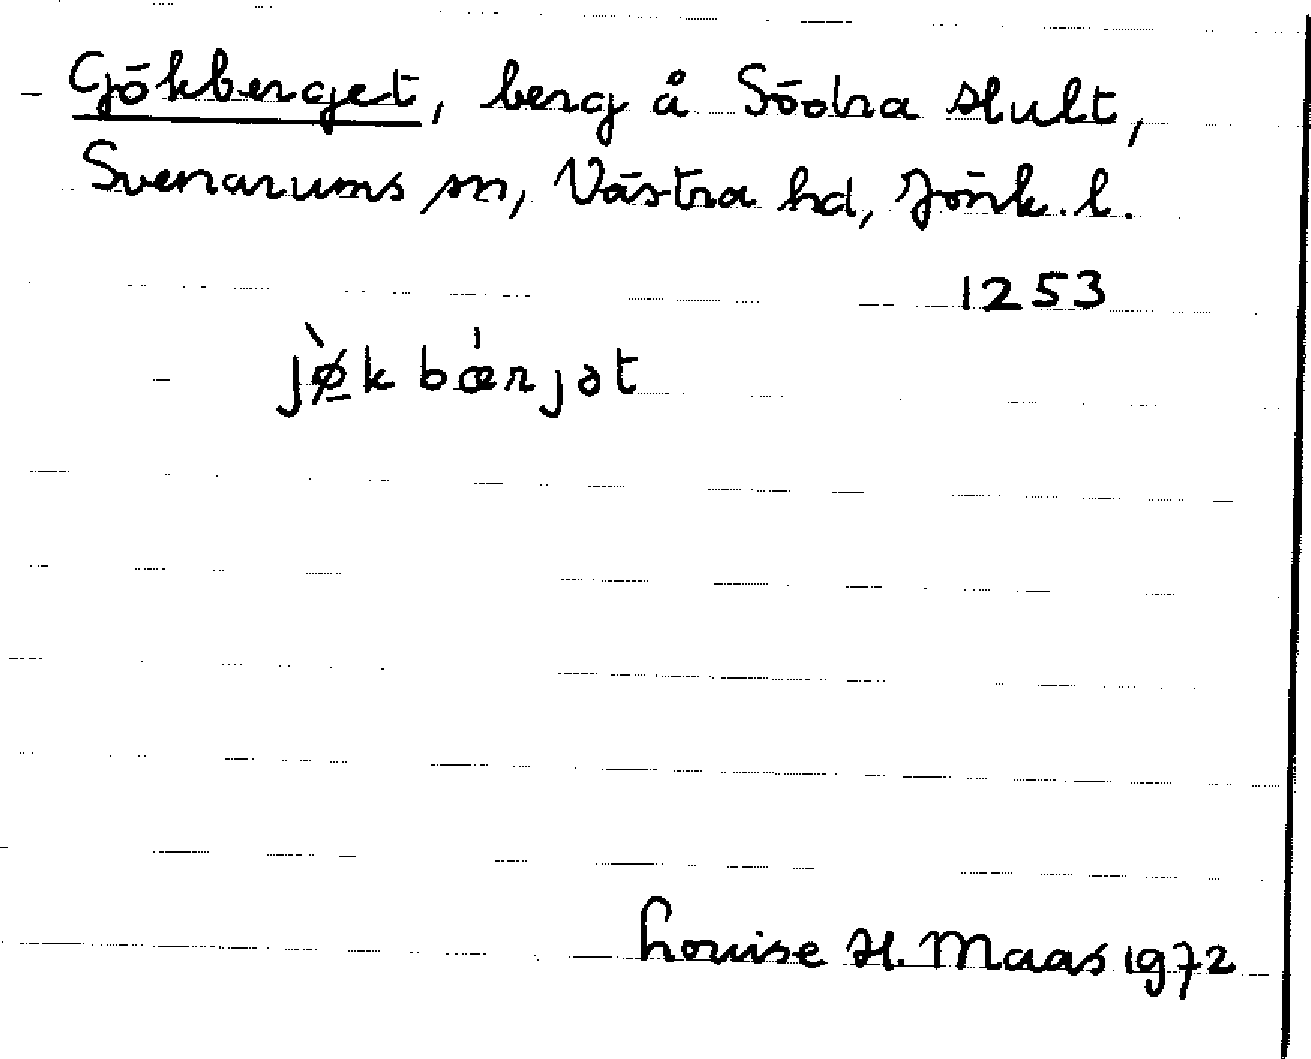 Gökberget, berg å Södra Slult,
Svenarums sn, Västra hd, Jönk. l.
1253
jø̀k bæ̀rjət
Louise H. Maas 1972